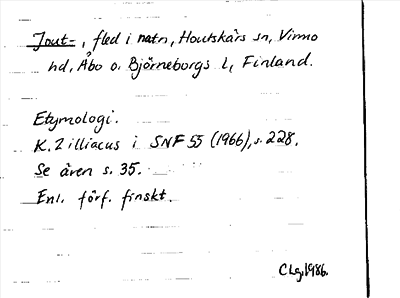 Jout-, fled i natn, Houtskärs sn, Virmo
hd, Åbo o. Björneborgs l, Finland.
Etymologi.
K. Zilliacus i SNF 55 (1966), s. 228.
Se även s. 35.
Enl. förf. finskt.
CLg. 1986.